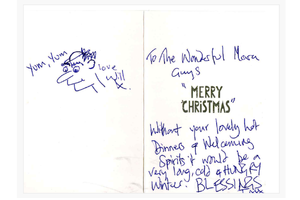 Yum, Yum
love
Will
x
To The Wonderful
Guys
"MERRY
CHRISTMAS"
Without your lovely hot
Dinners & Welcoming
Spirits it would be a
very long, cold & HUNGRY
Winter. BLESSINGS